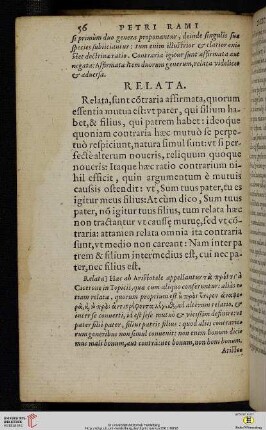 56 PETRI RAMI
se primùm duo genera proponantur, deinde singulis sua
species subiiciantur: tum enim illustrior & clarior exi
stet doctrinæ ratio. Contraria igitur sunt affirmata aut
negata: Affirmata item duorum generum, relata videlicet
& aduersa.
RELATA.
Relata, sunt cōtraria affirmata, quorum
essentia mutua est: vt pater, qui filium ha-
bet, & filius, qui patrem habet: ideoque
quoniam contraria hæc mutuò se perpe-
tuò respiciunt, natura simul sunt: vt si per-
fectè alterum noueris, reliquum quoque
noueris: Itaque hæc ratio contrariorum ni-
hil efficit, quin argumentum è mutuis
caussis ostendit: vt, Sum tuus pater, tu es
igitur meus filius: At cùm dico, Sum tuus
pater, nō igitur tuus filius, tum relata hæc
non tractantur vt caussæ mutuę, sed vt cō-
traria: attamen relata omnia ita contraria
sunt, vt medio non careant: Nam inter pa
trem & filium intermedius est, cui nec pa-
ter, nec filius est.
Relata] Hæc ab Aristotele appellantur τὰ πρός τι à
Cicerone in Topicis, quæ cum aliquo conferuntur: aliàs to
tam relata, quorum proprium est
ad alterum relatio, &
inter se conuerti, id est ipse mutuò & vicissim definire: vt
pater filii pater, filius patris filius: quod aliis contrario-
rum generibus non simul conuenit: non enim bonum dici
mus mali bonum, aut contrà: aut bonum, non boni bonum,
Aristo-